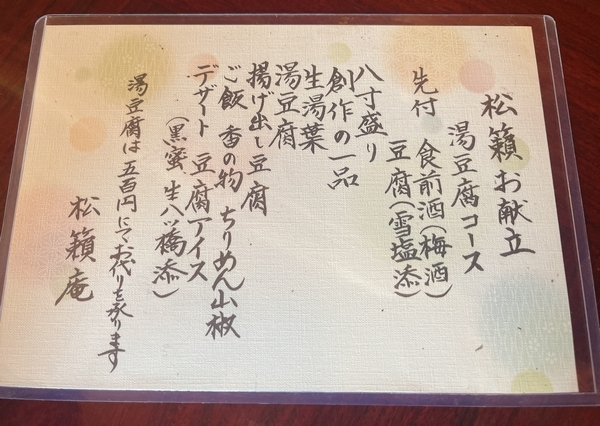 松籟お献立
湯豆腐コース
先付 食前酒(梅酒)
豆腐(雪塩添)
八寸盛り
創作の一品
生湯葉
湯豆腐
揚げ出し豆腐
ご飯 香の物 ちりめん山椒
デザート 豆腐アイス
(黒蜜 生八ッ橋添)
湯豆腐は五百円にてお代りを承ります
松籟庵